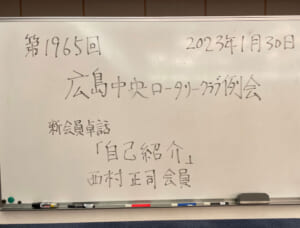 第1965回 2023年1月30日
広島中央ロータリークラブ例会
新会員卓話
「自己紹介」
西村正司会員